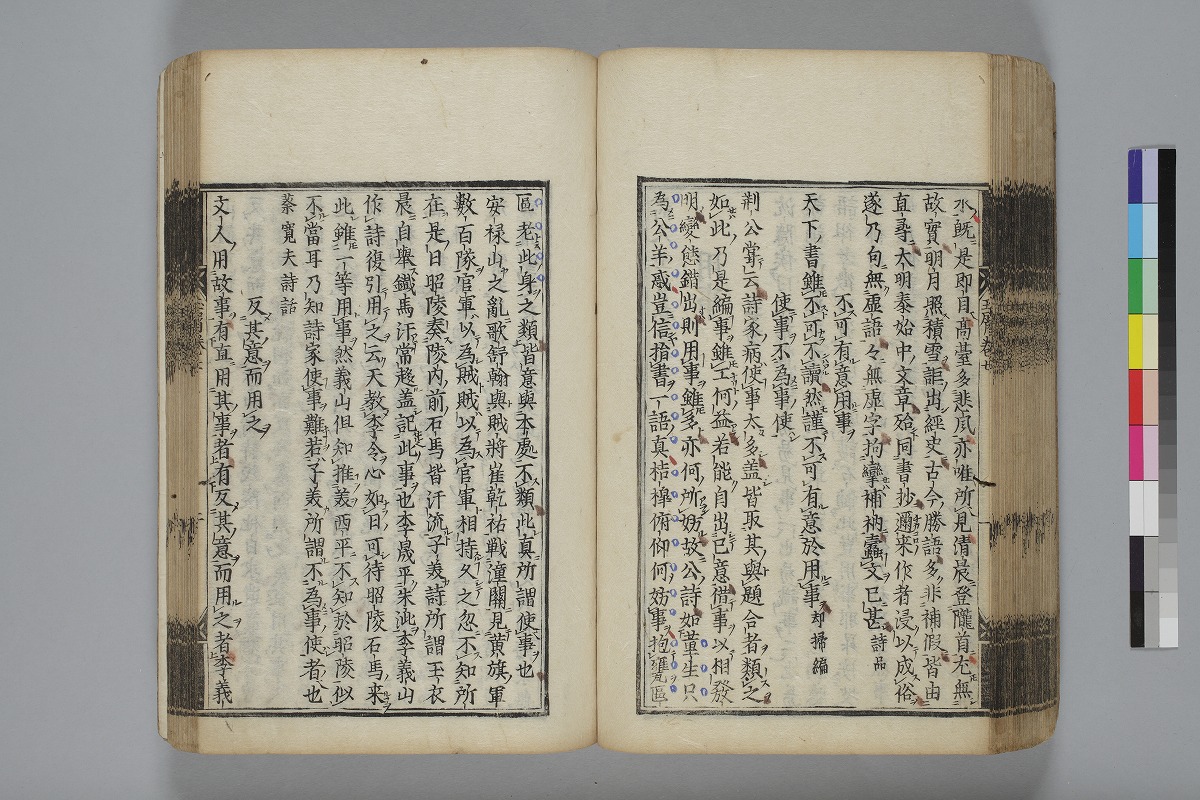 水既是即目高臺多悲風亦唯所見清晨登隴首尤無
故實明月照積雪詎出經史古今勝語多非補假皆由
直尋大明泰始中文章殆同書抄邇来作者浸以成俗
遂乃句無虚語々無虚字拘攣補衲蠹文已甚 詩品
不可有意用事
天下書雖不可不讀然謹不可有意於用事 却掃編
使事不為事使
荆公甞云詩家病使事太多盖皆取其與題合者類之
如此乃是編事雖工何益若能自出己意借事以相發
明變態錯出則用事雖多亦何所妨故公詩如董生只
為公羊惑豈信捨書一語真桔槹俯仰何妨事抱甕區
區老此身之類皆意與本處不類此真所謂使事也
安禄山之亂歌舒翰與賊將崔乾祐戦潼關見黄旗軍
數百隊官軍以為賊賊以為官軍相持久之忽不知所
在是日昭陵奏陵内前石馬皆汗流子美詩所謂玉衣
晨自舉鐵馬汗當趍盖記此事也李晟平朱泚李義山
作詩復引用之云天教李令心如日可待昭陵石馬来
此雖一等用事然義山但知推義西平不知於昭陵似
不當耳乃知詩家使事難若子美所謂不為事使者也
蔡寛夫詩話
反其意而用之
文人用故事有直用其事者有反其意而用之者李義